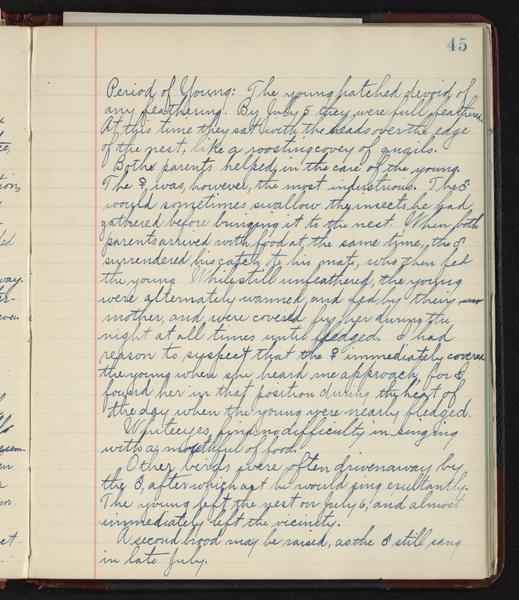 45
Period of Young: The young hatched devoid of
any feathering. By July 5 they were full feathered
At this time they sat with the heads over the edge
of the nest, like a roosting covey of quails.
Both parents helped in the care of the young.
The ♀ was, however, the most industrious. The ♂
would sometimes swallow the insects he had
gathered before bringing it to the nest. When both
parents arrived with food at the same time, the ♂
surrendered his catch to his mate, who then fed
the young. While still unfeathered, the young
were alternately warmed and fed by their
mother, and were covered by her during the
night at all times until fledged. I had
reason to suspect that the ♀ immediately covered
the young when she heard me approach, for I
found her in that position during the heat of
the day when the young were nearly fledged.
Whiteeyes find no difficulty in singing
with a mouthful of food.
Other birds were often driven away by
the ♂, after which act he would sing exultantly.
The young left the nest on July 6, and almost
immediately left the vicinity.
A second brood may be raised, as the ♂ still sang
in late July.